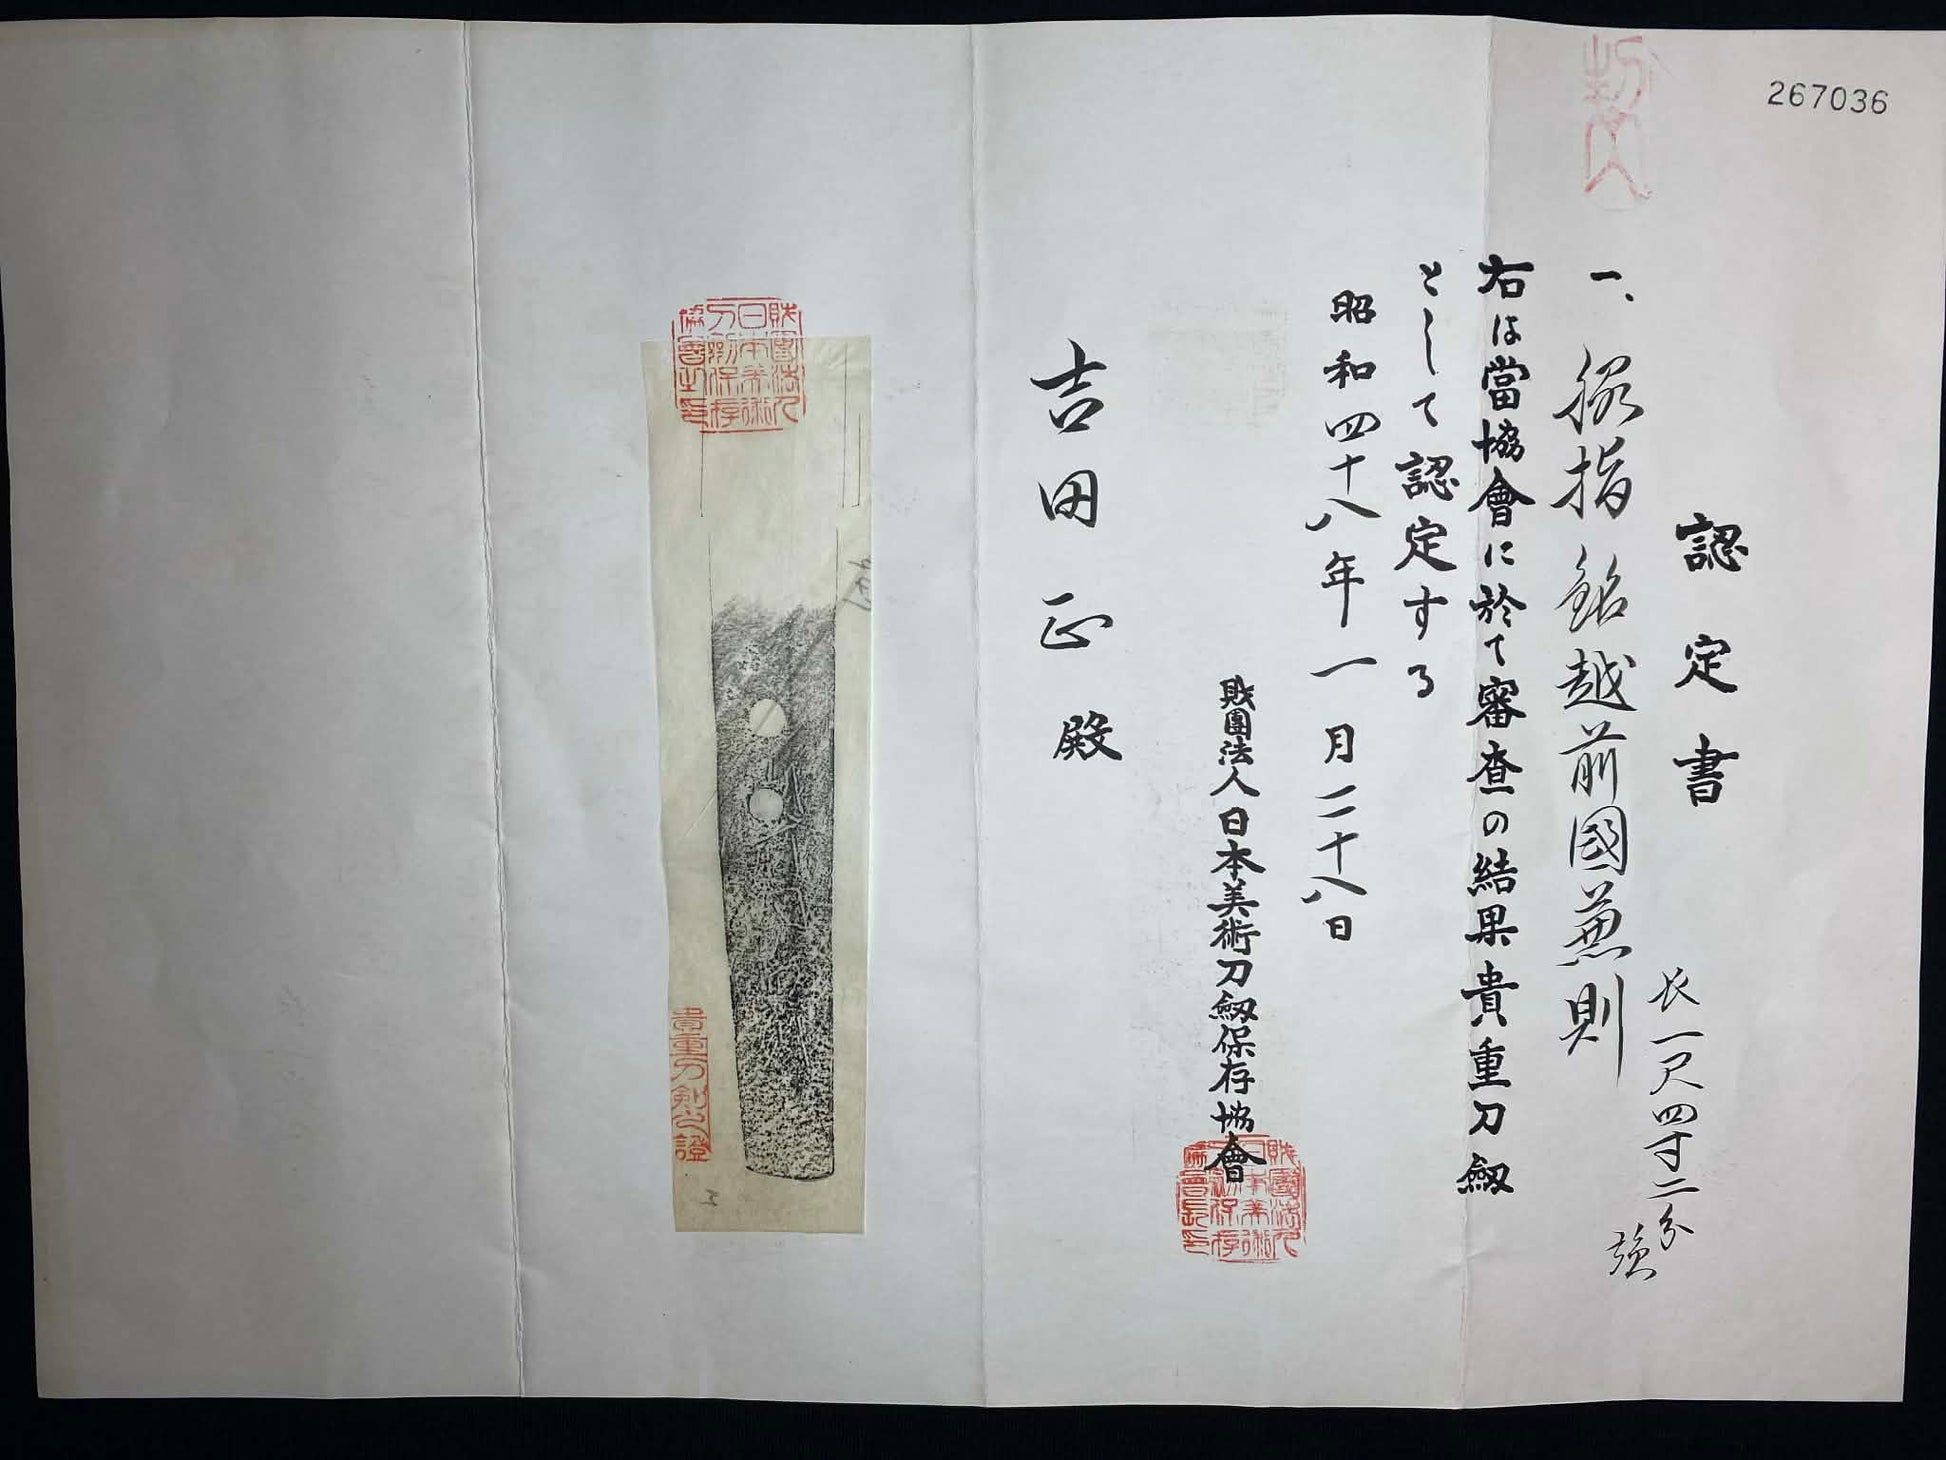 267036
認定書
長一尺四寸二分強
一、脇指 銘越前國兼則
右は當協會に於て審査の結果貴重刀劔
として認定する
昭和四十八年一月二十八日
財團法人日本美術刀劔保存協會
吉田正殿
財團法人
日本美術
刀剣保存
協會之印
貴重刀剣之證